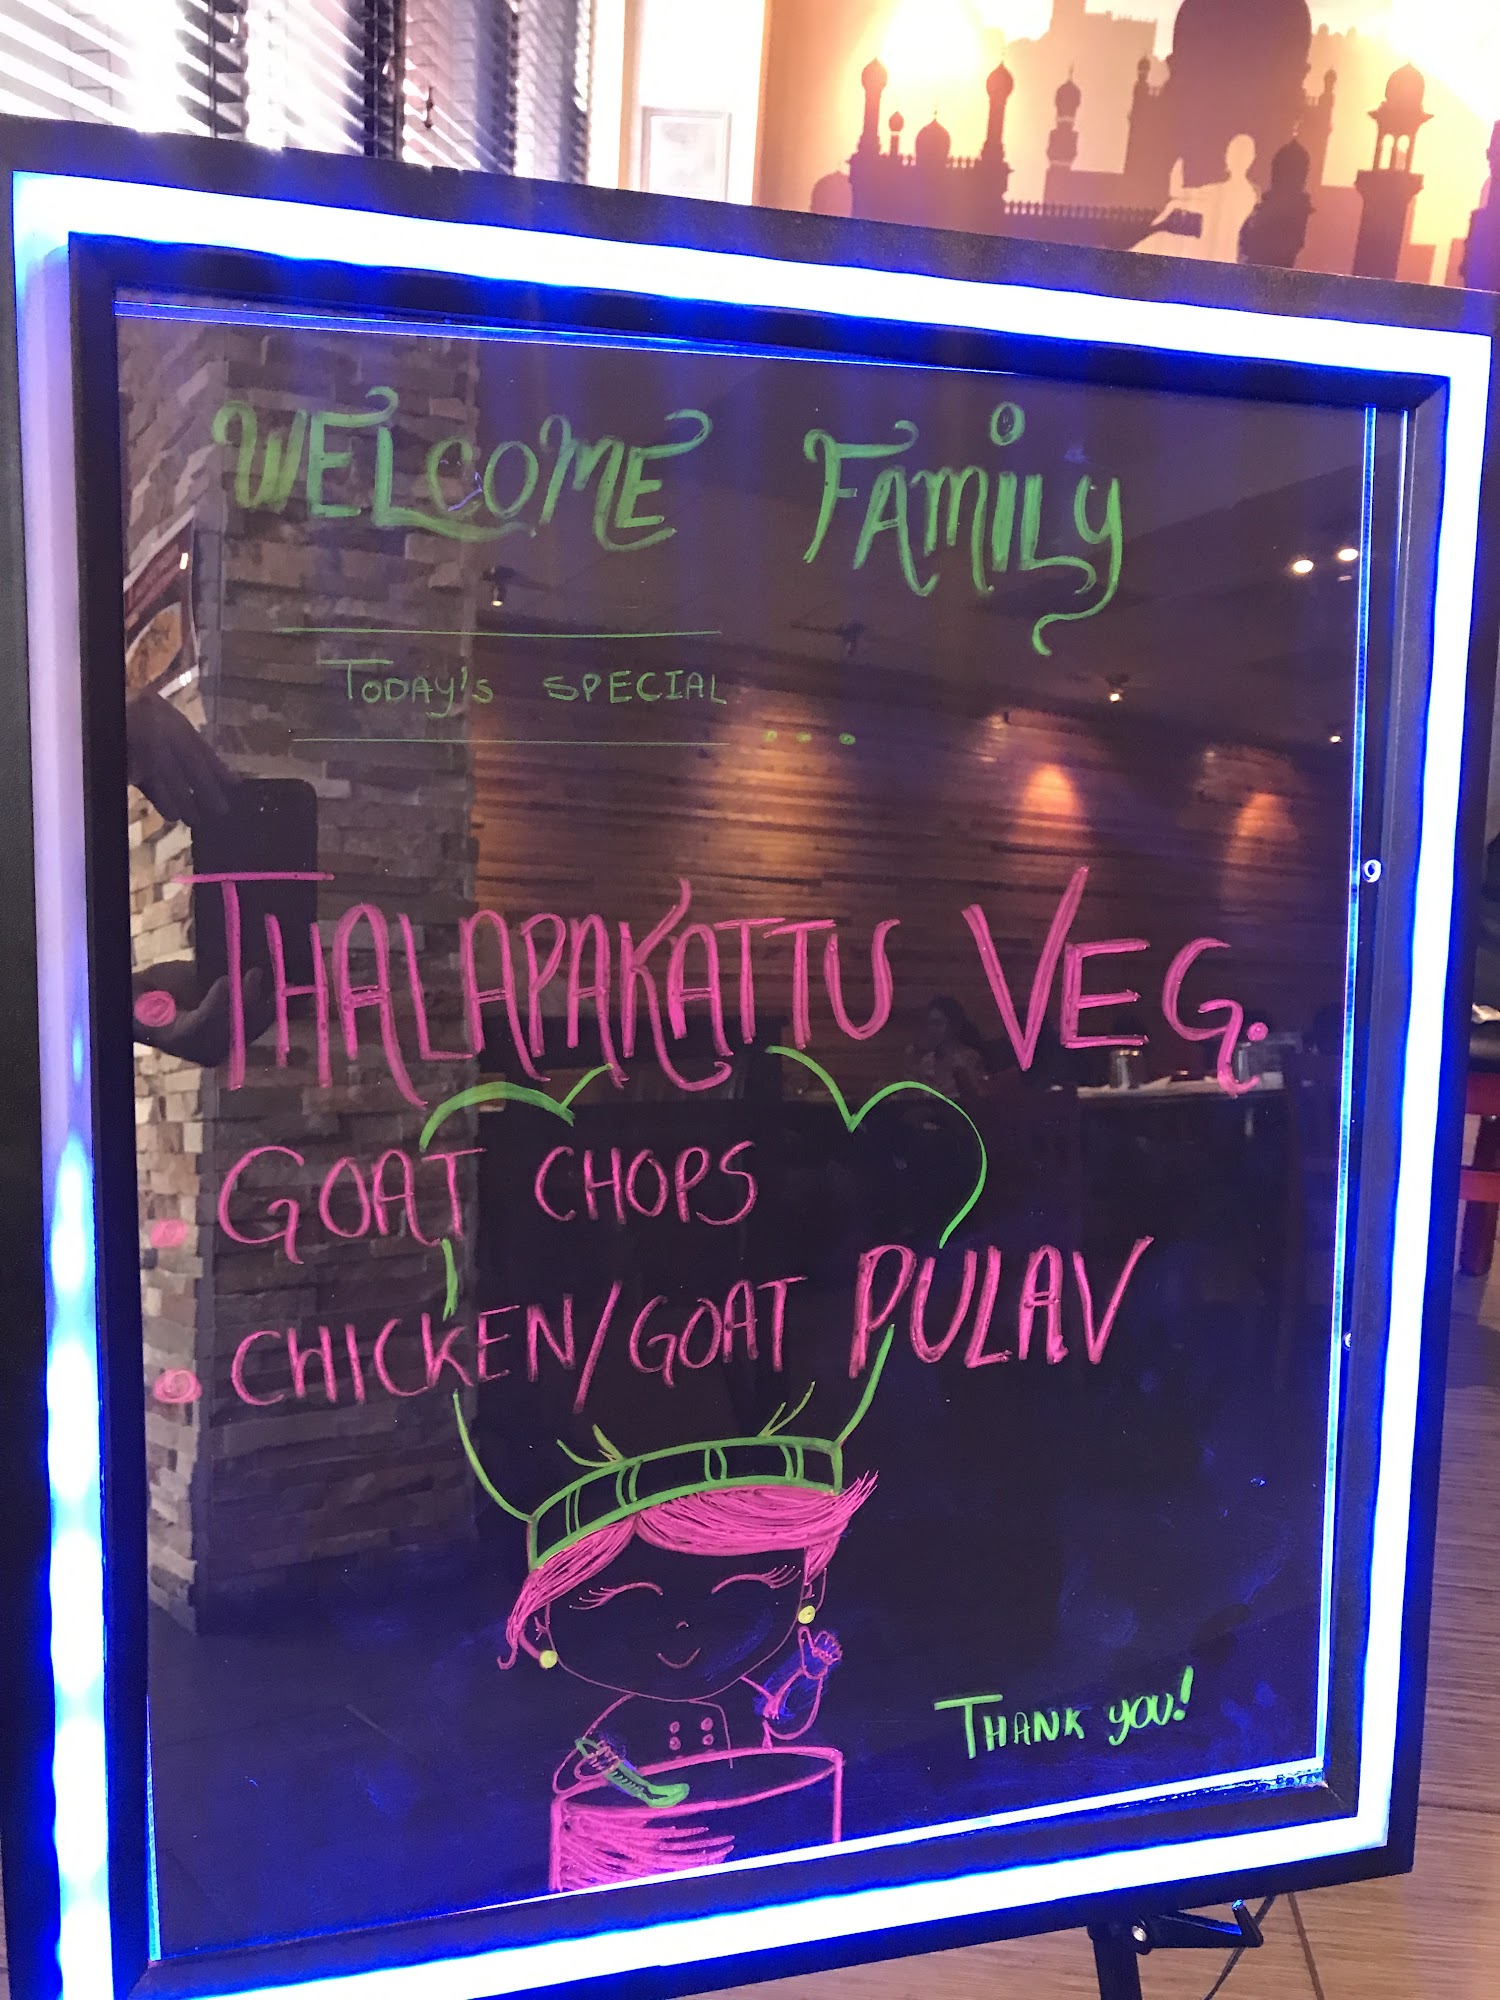 WELCOME FAMILY
TODAY'S SPECIAL ...
• THALAPAKATTU VEG.
• GOAT CHOPS
• CHICKEN/GOAT PULAV
THANK YOU!